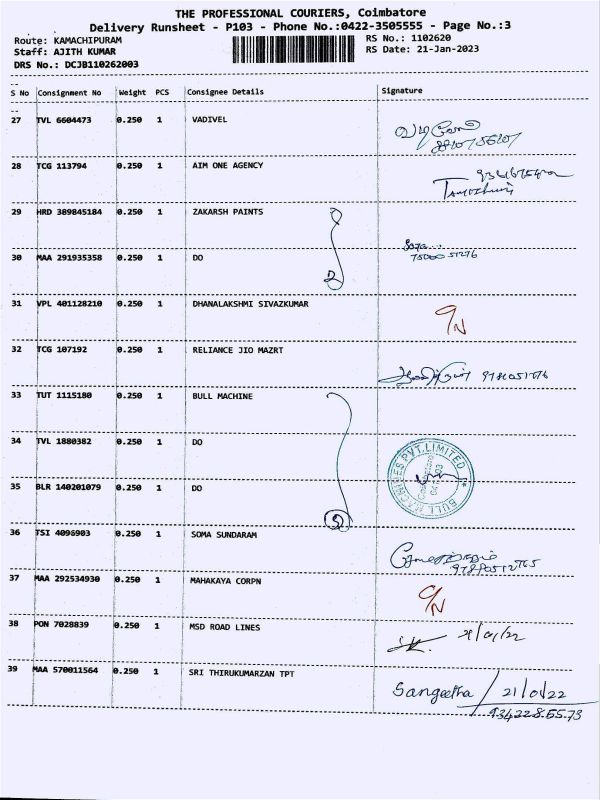 THE PROFESSIONAL COURIERS, Coimbatore
Delivery Runsheet - P103 - Phone No.:0422-3505555 - Page No.:3
Route: KAMACHIPURAM RS No.: 1102620
Staff: AJITH KUMAR RS Date: 21-Jan-2023
DRS No.: DCJB110262003
S No Consignment No Weight PCS Consignee Details Signature
27 TVL 6604473 0.250 1 VADIVEL
28 TCG 113794 0.250 1 AIM ONE AGENCY
29 HRD 389845184 0.250 1 ZAKARSH PAINTS
30 MAA 291935358 0.250 1 DO 2
31 VPL 401128210 0.250 1 DHANALAKSHMI SIVAZKUMAR
32 TCG 107192 0.250 1 RELIANCE JIO MAZRT
33 TUT 1115180 0.250 1 BULL MACHINE
34 TVL 1880382 0.250 1 DO
BULL MACHINES PVT. LIMITED
35 BLR 140201079 0.250 1 DO
36 TSI 4096903 0.250 1 SOMA SUNDARAM
37 MAA 292534930 0.250 1 MAHAKAYA CORPN
38 PON 7028839 0.250 1 MSD ROAD LINES
39 MAA 570011564 0.250 1 SRI THIRUKUMARZAN TPT Sangeetha / 21/01/22
934228.55.73